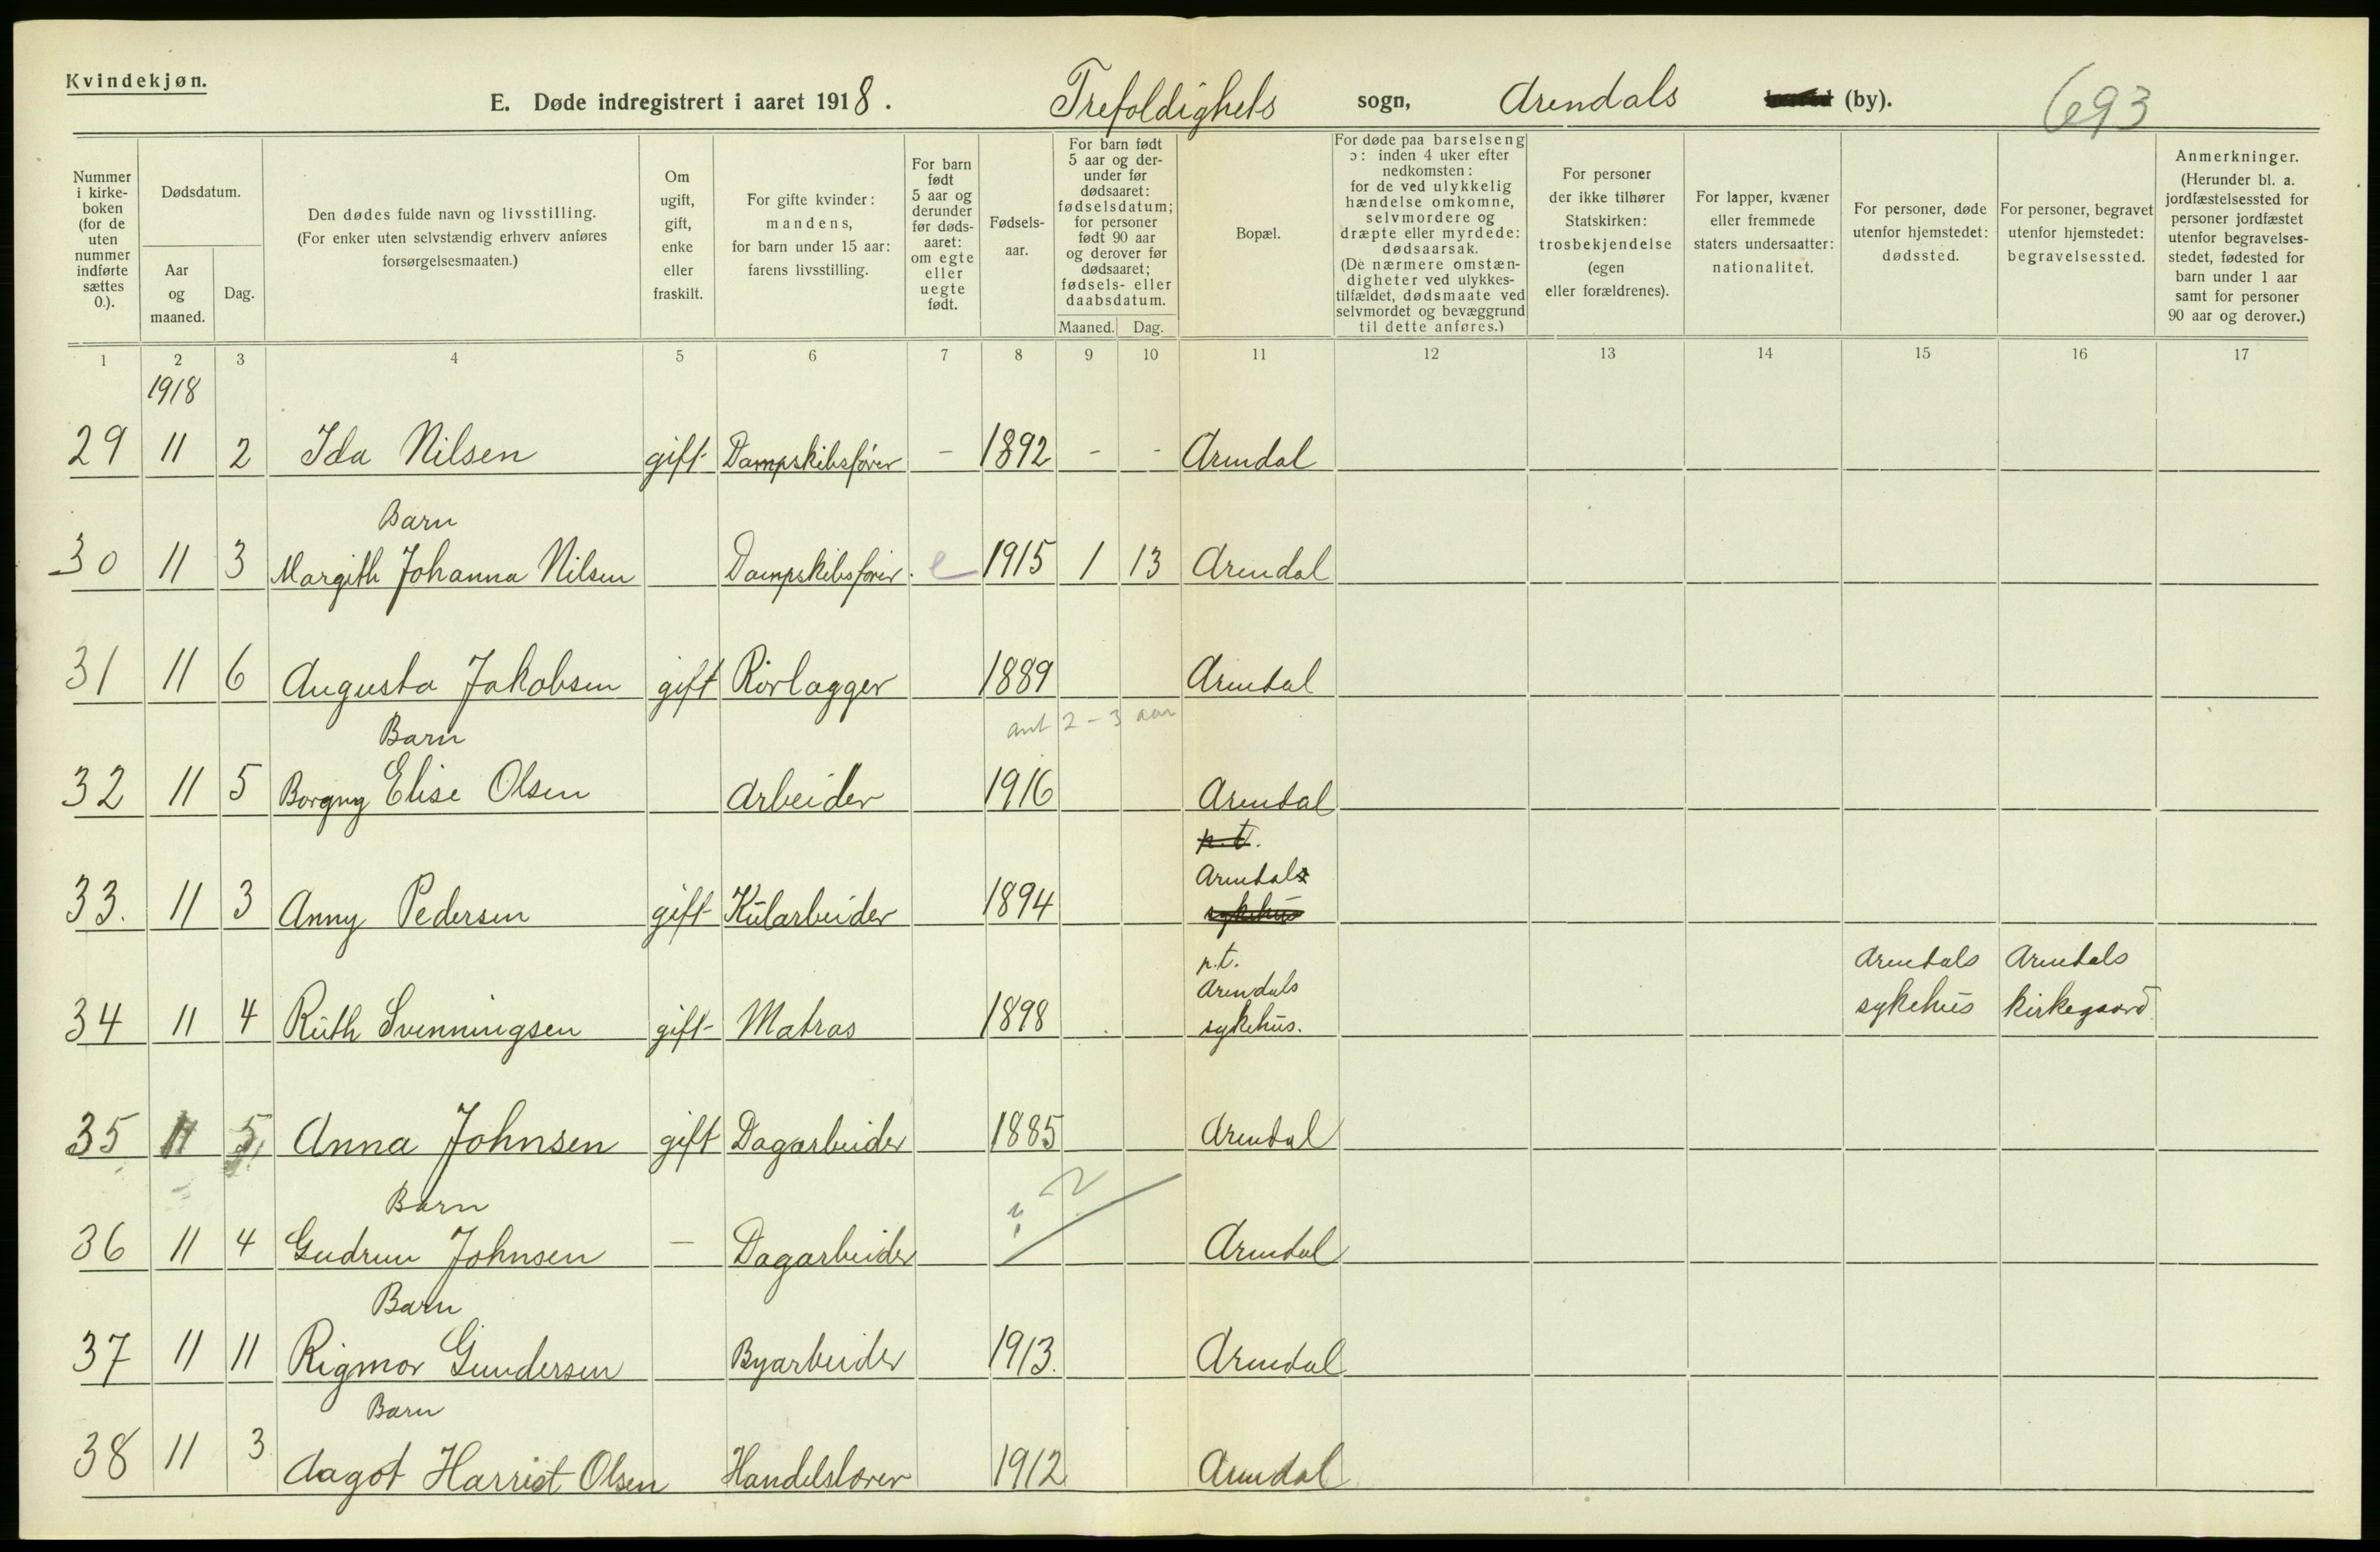 Kvindekjøn.
E. Døde indregistrert i aaret 1918. Trefoldighets sogn, Arendals (by). 693
Nummer i kirkeboken (for de uten nummer indførte sættes 0.).
Dødsdatum.
Aar og maaned.
Dag.
Den dødes fulde navn og livsstilling. (For enker uten selvstændig erhverv anføres forsørgelsesmaaten.)
Om ugift, gift, enke eller fraskilt.
For gifte kvinder: mandens, for barn under 15 aar: farens livsstilling.
For barn født 5 aar og derunder før dødsaaret: om egte eller uegte født.
Fødselsaar.
For barn født 5 aar og derunder før dødsaaret: fødselsdatum; for personer født 90 aar og derover før dødsaaret; fødsels- eller daabsdatum.
Maaned. Dag.
Bopæl.
For døde paa barselseng ɔ: inden 4 uker efter nedkomsten: for de ved ulykkelig hændelse omkomne, selvmordere og dræpte eller myrdede: dødsaarsak. (De nærmere omstændigheter ved ulykkestilfældet, dødsmaate ved selvmordet og bevæggrund til dette anføres.)
For personer der ikke tilhører Statskirken: trosbekjendelse (egen eller forældrenes).
For lapper, kvæner eller fremmede staters undersaatter: nationalitet.
For personer, døde utenfor hjemstedet: dødssted.
For personer, begravet utenfor hjemstedet: begravelsessted.
Anmerkninger. (Herunder bl. a. jordfæstelsessted for personer jordfæstet utenfor begravelsesstedet, fødested for barn under 1 aar samt for personer 90 aar og derover.)
1 2 3 4 5 6 7 8 9 10 11 12 13 14 15 16 17
1918
29 11 2 Ida Nilsen gift Dampskibsfører - 1892 - - Arendal
Barn
30 11 3 Margith Johanna Nilsen Dampskibsfører. e 1915 1 13 Arendal
31 11 6 Augusta Jakobsen gift Rørlægger 1889 Arendal
Barn ant 2 - 3 aar
32 11 5 Borgny Elise Olsen Arbeider 1916 Arendal
p.t.
Arendals
33. 11 3 Anny Pedersen gift Kularbeider 1894 sykehus
p.t. Arendals Arendals
Arendals
34 11 4 Ruth Svenningsen gift Matros 1898 sykehus. sykehus kirkegaard
35 11 5 Anna Johnsen gift Dagarbeider 1885 Arendal
Barn
36 11 4 Gudrun Johnsen - Dagarbeider Arendal
Barn
37 11 11 Rigmor Gundersen Byarbeider 1913. Arendal
Barn
38 11 3 Aagot Harriet Olsen Handelslærer 1912 Arendal